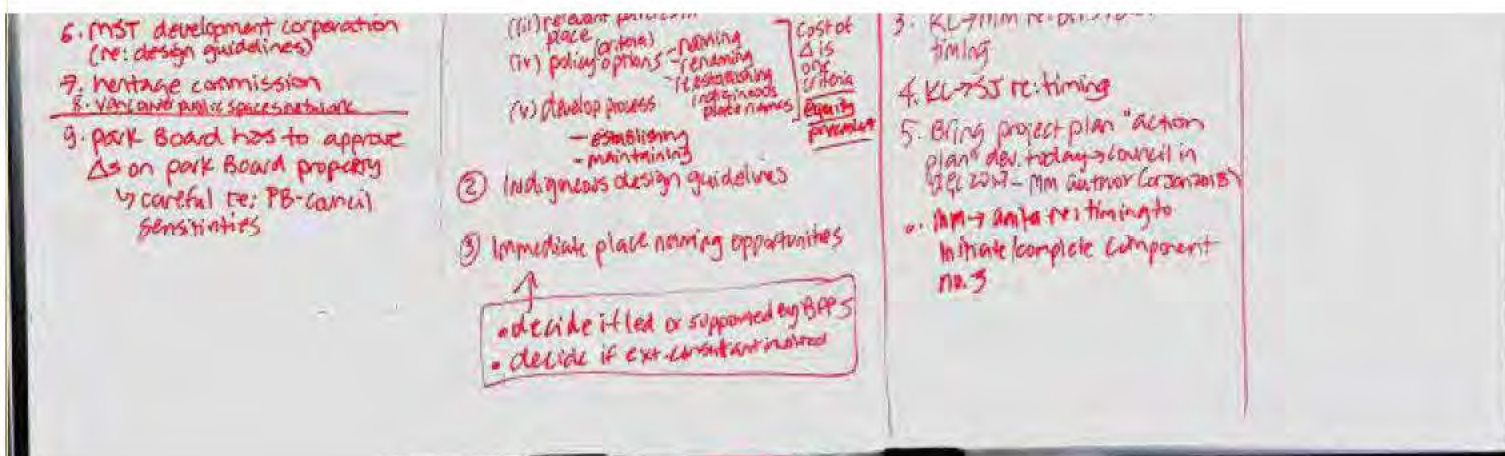 6. MST development corporation
(re: design guidelines)
7. heritage commission
8. public spaces network
9. park Board has to approve
Δs on park Board property
↳ careful re: PB-Council
sensitivities
(iii) relevant policies in
place
(criteria)
(iv) policy options - naming
- renaming
- reestablishing
indigenous
place names
(v) develop process
- establishing
- maintaining
Cost of
Δ is
one
criteria
equity
② Indigenous design guidelines
③ Immediate place naming opportunities
↑
• decide if led or supported by
• decide if ext. consultant involved
3. KL→MM re:
timing
4. KL→SJ re: timing
5. Bring project plan "action
plan" dev. today → council in
2017 - MM author (or Jan 2018)
MM → re: timing to
initiate/complete component
no. 3